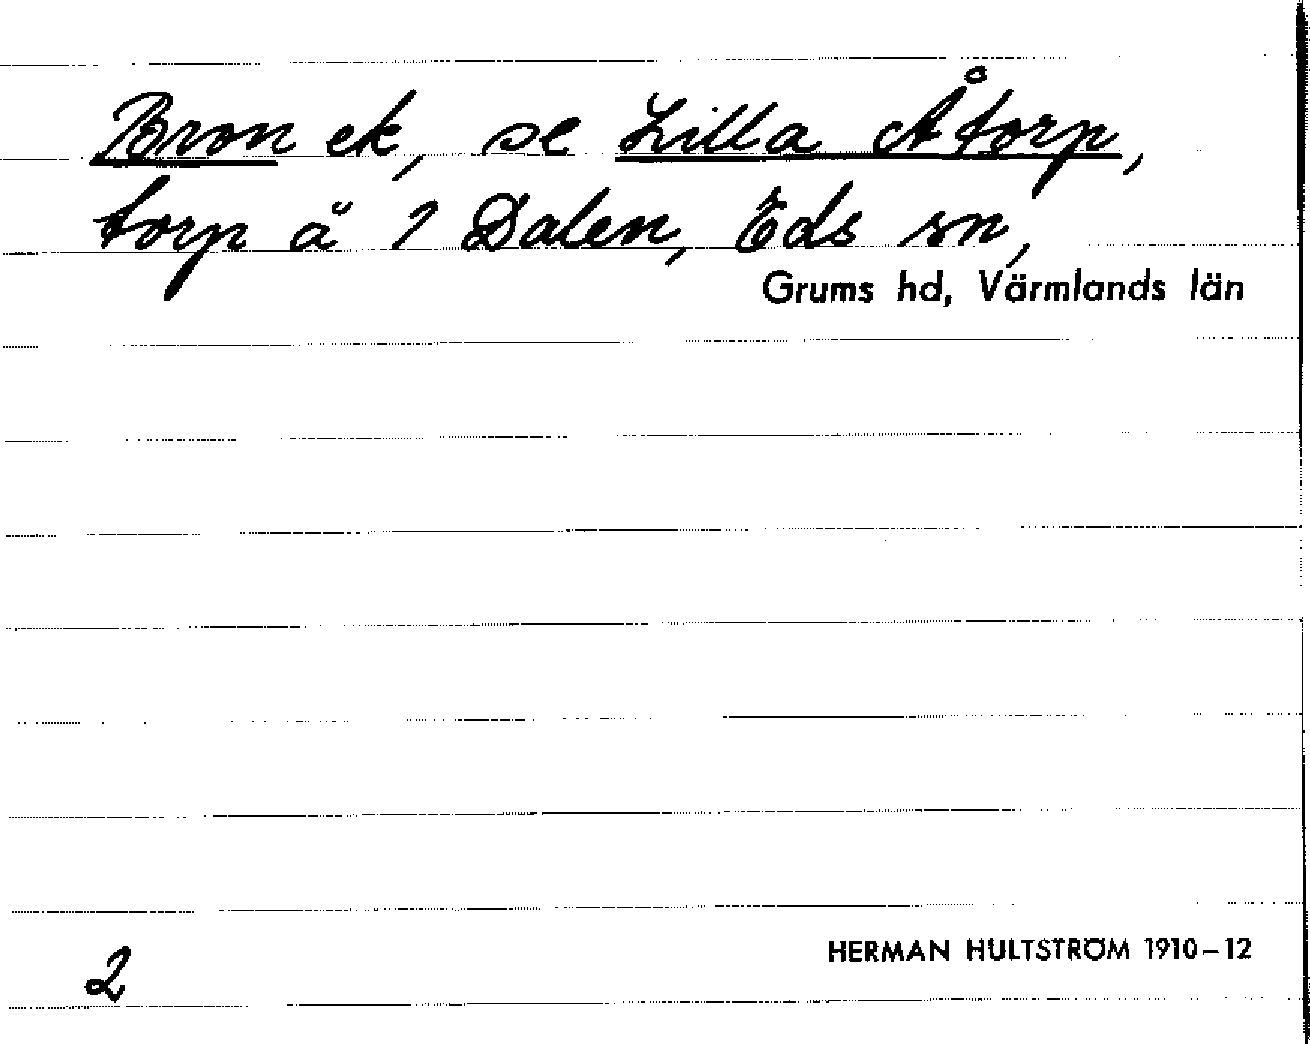 Bron ek, se Lilla Åtorp,
torp å 1 Dalen, Eds sn,
Grums hd, Värmlands län
HERMAN HULTSTRÖM 1910-12
2